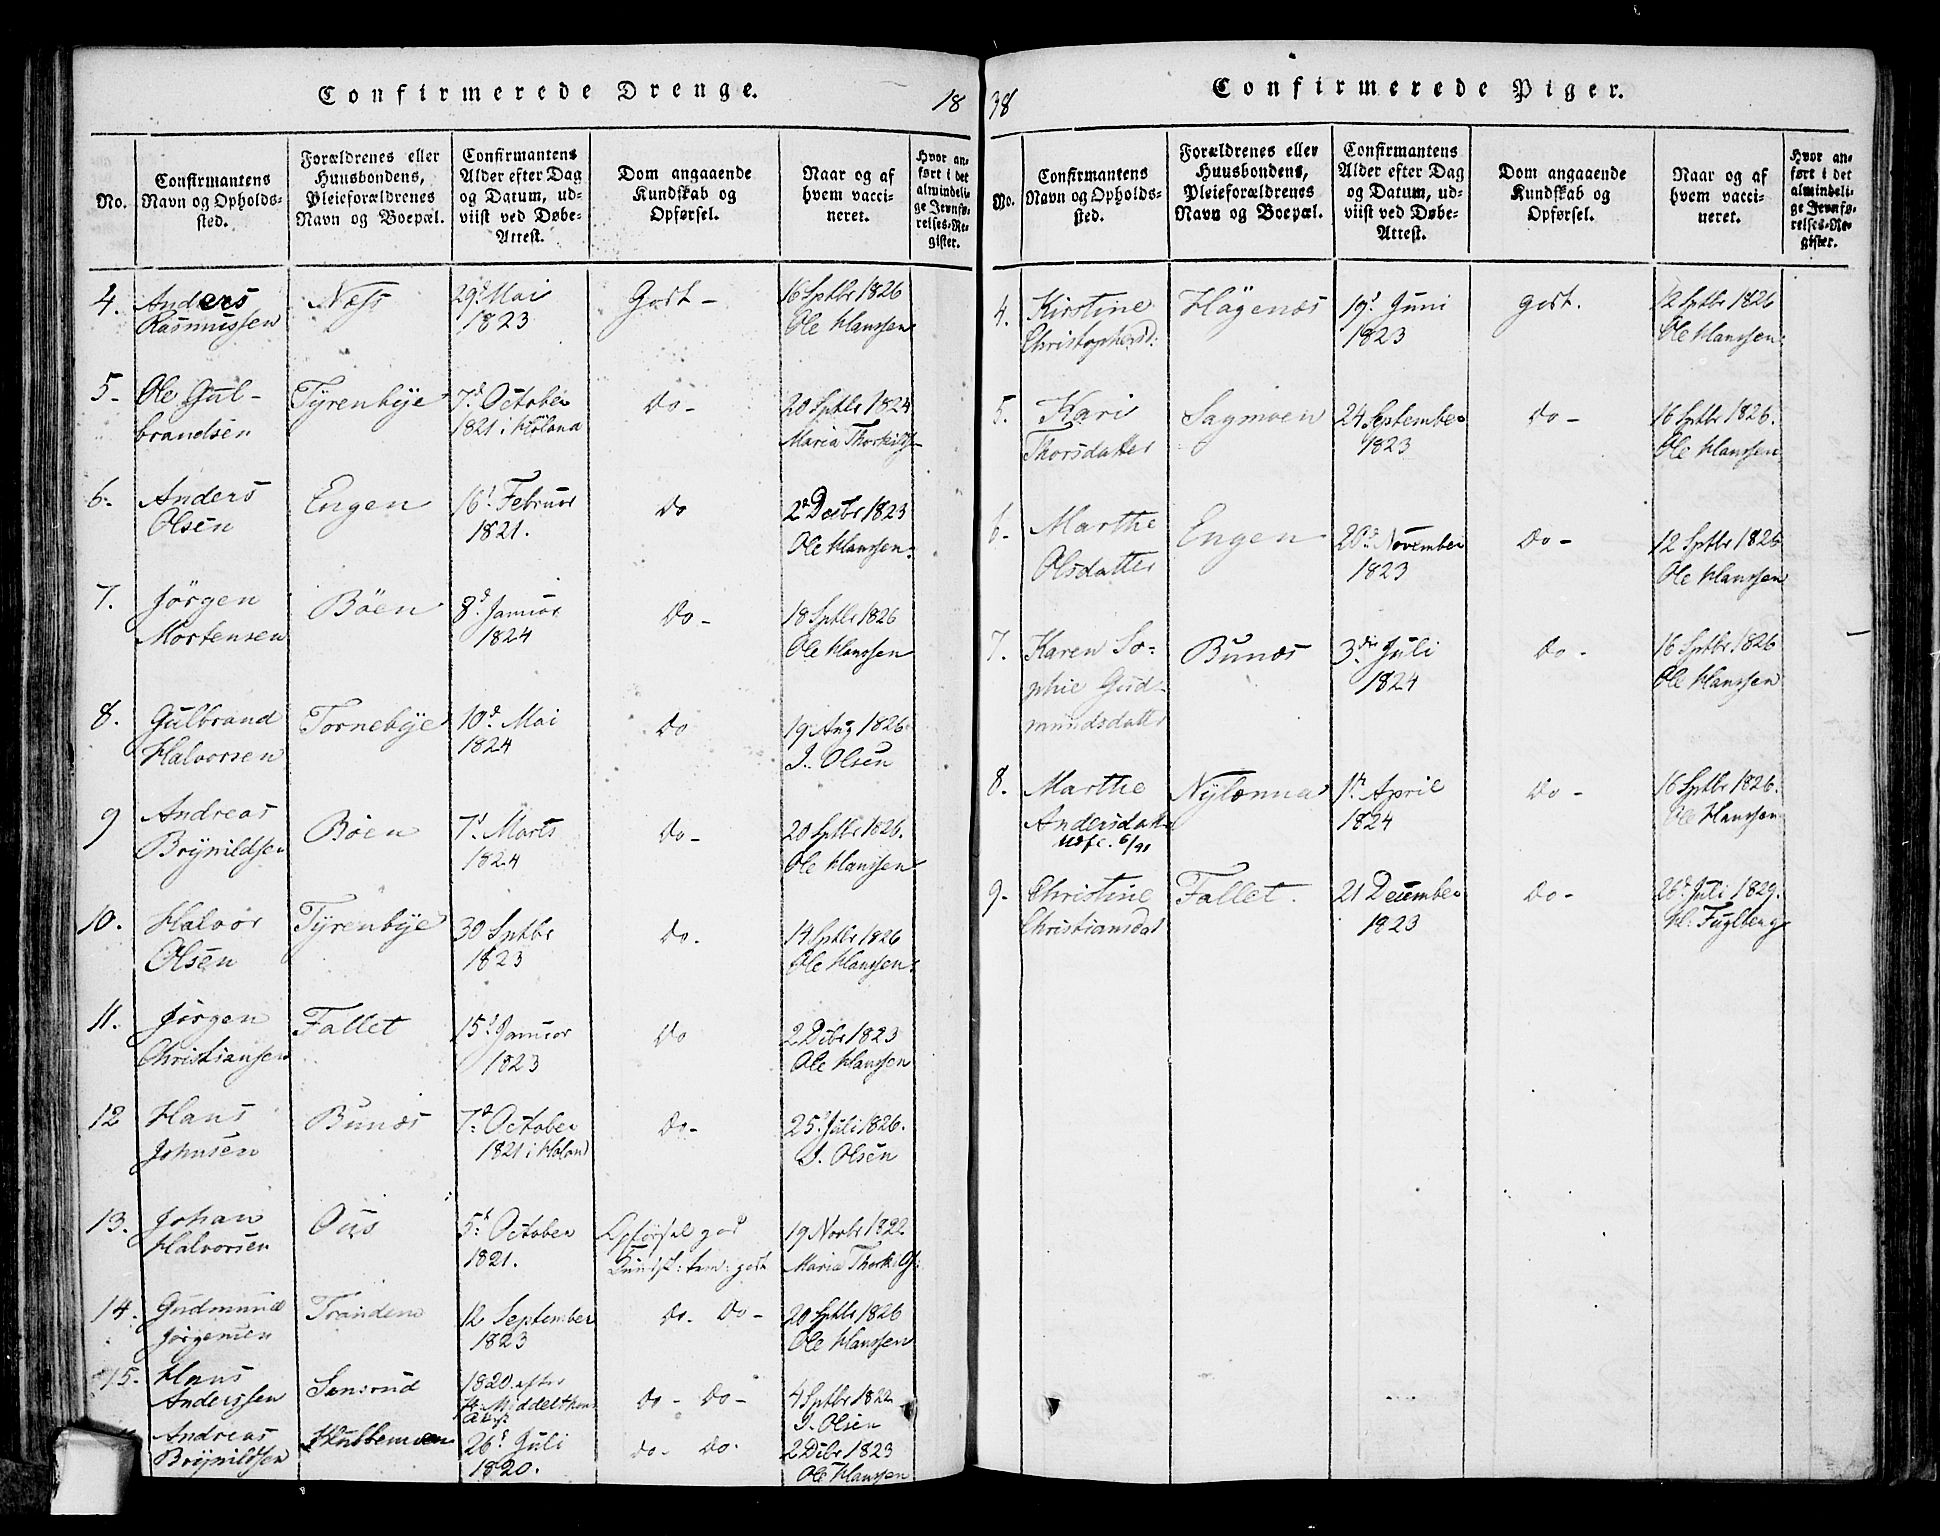 Confirmerede Drenge.
18
No.
Confirmantens Navn og Opholdssted.
Forældrenes eller Huusbondens, Pleieforældrenes Navn og Boepæl.
Confirmantens Alder efter Dag og Datum, udviist ved Døbe-Attest.
Dom angaaende Kundskab og Opførsel.
Naar og af hvem vaccineret.
Hvor anført i det almindelige Jevnførelses-Register.
4. Anders Næss 29d Mai Godt - 16 Sptbr 1826
Rasmussen 1823 Ole Hanssen
5- Ole Gul- Tyrenbye 7d October Do- 20 Sptbr 1824
brandsen 1821 i Höland Maria Thorkilds-
6- Anders Engen 16d Februar Do 2d Decbr 1823
Olsen 1821. Ole Hanssen
7. Jørgen Böen 8d Januar Do- 18 Sptbr 1826
Mortensen 1824 Ole Hanssen
8. Gulbrand Tornebye 10d Mai Do 19 Aug 1826
Halvorsen 1824 J. Olsen
9 Andreas Böen 7d Marts Do- 20 Sptbr 1826.
Brynildsen 1824 Ole Hanssen
10. Halvor Tyrenbye 30 Sptbr Do. 14 Sptbr 1826
Olsen 1823 Ole Hanssen
11. Jørgen Fallet 15d Januar Do 2 Dcbr 1823
Christiansen 1823 Ole Hanssen
12 Hans Bunæs 7d October Do- 25d Juli 1826.
Johnsen 1821 i Höland J. Olsen
13. Johan Ous 5d October Opførsel god 19 Novbr 1822
Halvorsen 1821. Kundsk: tem: godt Maria Thorkilds:
14. Gudmund Tranden 12 September Do- Do- 20 Sptbr 1826
Jørgensen 1823 Ole Hanssen
15. Hans Sensrud 1820 efter Do - Do - 4 Sptbr 1822
Anderssen Middelthons J. Olsen
Attest
Andreas 26d Juli Do- Do. 2 Dcbr 1823
Brynildsen 1820. Ole Hanssen
38
Confirmerede Piger.
No.
Confirmantens Navn og Opholdssted.
Forældrenes eller Huusbondens, Pleieforældrenes Navn og Boepæl.
Confirmantens Alder efter Dag og Datum, udviist ved Døbe-Attest.
Dom angaaende Kundskab og Opførsel.
Naar og af hvem vaccineret.
Hvor anført i det almindelige Jevnførelses-Register.
4. Kirstine Högenæs 19d Juni godt. 12 Sptbr 1826
Christophersd: 1823 Ole Hanssen
5. Kari Sagmoen 24 September Do- 16 Sptbr 1826.
Thorsdatter 1823 Ole Hanssen
6- Marthe Engen 20d November Do- 12 Sptbr 1826
Olsdatter 1823 Ole Hanssen
7. Karen So- Bunæs 3die Juli Do - 16 Sptbr 1826
phie Gud- 1824 Ole Hanssen
mundsdatter
8. Marthe 1ste April Do - 16 Sptbr 1826.
Andersdatter 1824 Ole Hanssen
6/91
9. Christine Fallet. 21 December Do- 26d Juli 1829.
Christiansdat 1823 H: Fuglberg